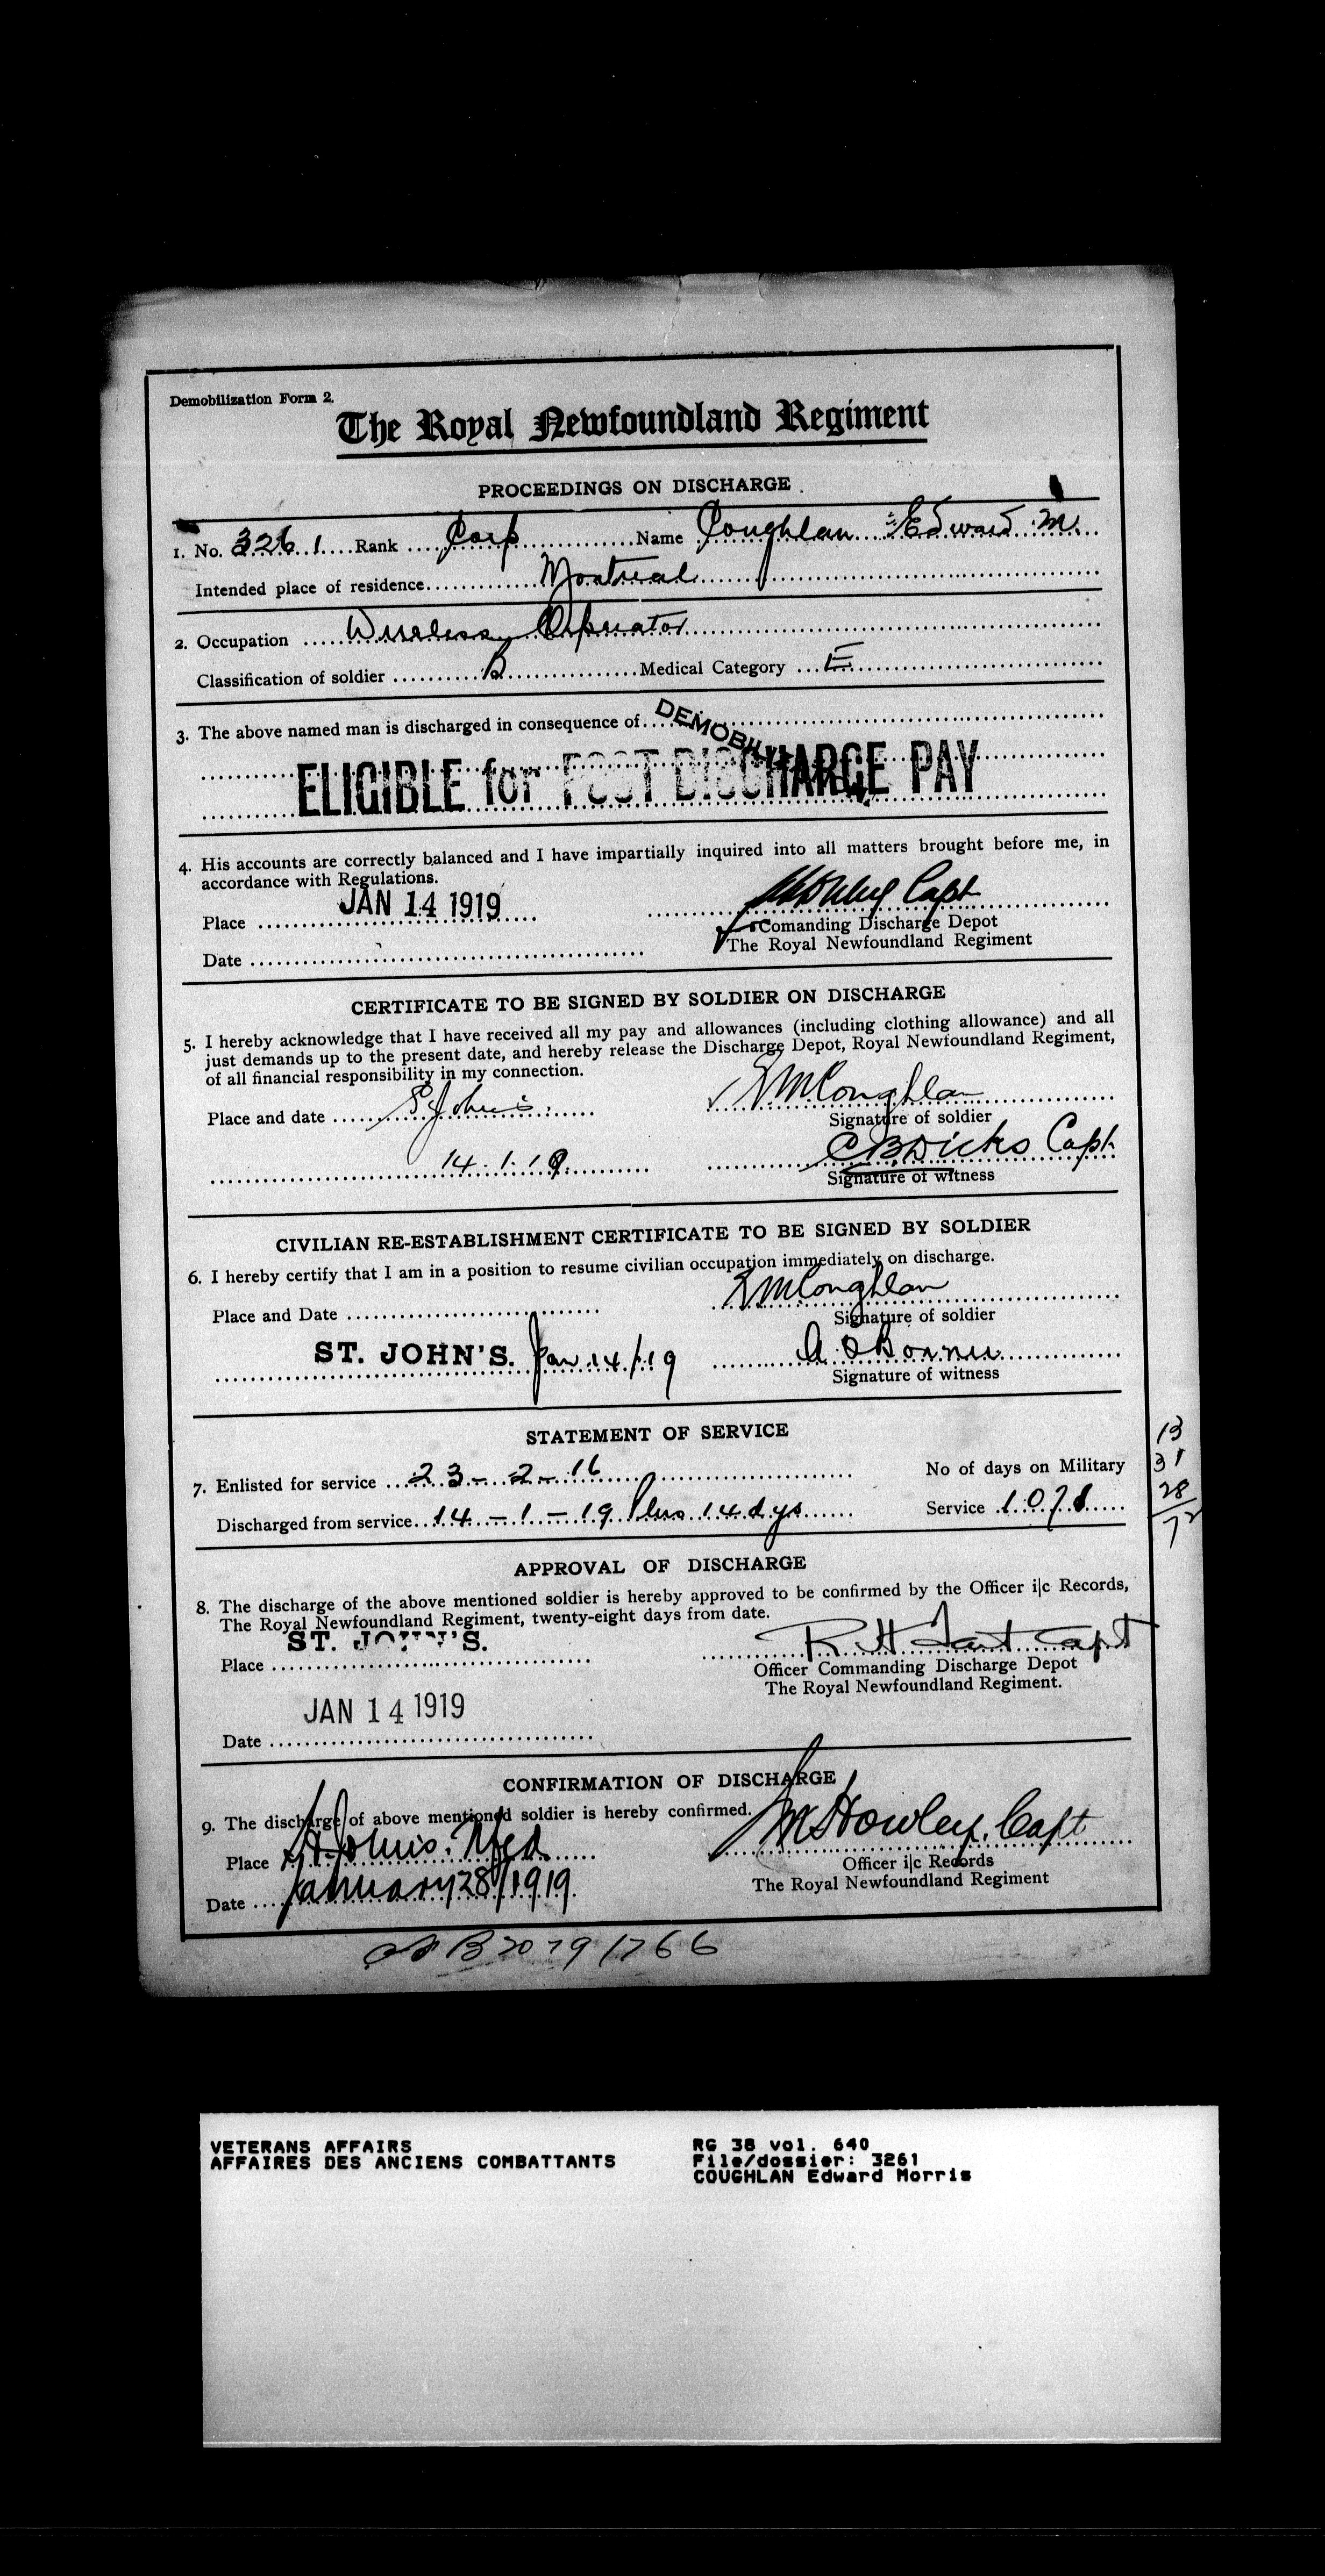 Demobilization Form 2.
The Royal Newfoundland Regiment
PROCEEDINGS ON DISCHARGE
1. No. 3261 Rank Corp Name Coughlan Edward M.
Intended place of residence Montreal
2. Occupation Wireless Operator
Classification of soldier B Medical Category E
3. The above named man is discharged in consequence of
ELIGIBLE for POST DISCHARGE PAY
4. His accounts are correctly balanced and I have impartially inquired into all matters brought before me, in
accordance with Regulations.
JAN 14 1919
Place Capt
Comanding Discharge Depot
Date The Royal Newfoundland Regiment
CERTIFICATE TO BE SIGNED BY SOLDIER ON DISCHARGE
5. I hereby acknowledge that I have received all my pay and allowances (including clothing allowance) and all
just demands up to the present date, and hereby release the Discharge Depot, Royal Newfoundland Regiment,
of all financial responsibility in my connection.
Place and date St Johns EMCoughlan
Signature of soldier
14.1.19 C B Dicks Capt
Signature of witness
CIVILIAN RE-ESTABLISHMENT CERTIFICATE TO BE SIGNED BY SOLDIER
6. I hereby certify that I am in a position to resume civilian occupation immediately on discharge.
Place and Date EMCoughlan
Signature of soldier
ST. JOHN'S. Jan 14/19
Signature of witness
STATEMENT OF SERVICE
7. Enlisted for service 23-2-16 No of days on Military
Discharged from service 14-1-19 Plus 14 dys Service 1071
13
31
28
72
APPROVAL OF DISCHARGE
8. The discharge of the above mentioned soldier is hereby approved to be confirmed by the Officer i|c Records,
The Royal Newfoundland Regiment, twenty-eight days from date.
Place ST. JOHN'S. R H Tait Capt
Officer Commanding Discharge Depot
The Royal Newfoundland Regiment.
JAN 14 1919
Date
CONFIRMATION OF DISCHARGE
9. The discharge of above mentioned soldier is hereby confirmed.
Place St Johns. Nfld M Howley, Capt
Officer i|c Records
Date January 28/1919 The Royal Newfoundland Regiment
VETERANS AFFAIRS
AFFAIRES DES ANCIENS COMBATTANTS
RG 38 vol. 640
File/dossier: 3261
COUGHLAN Edward Morris